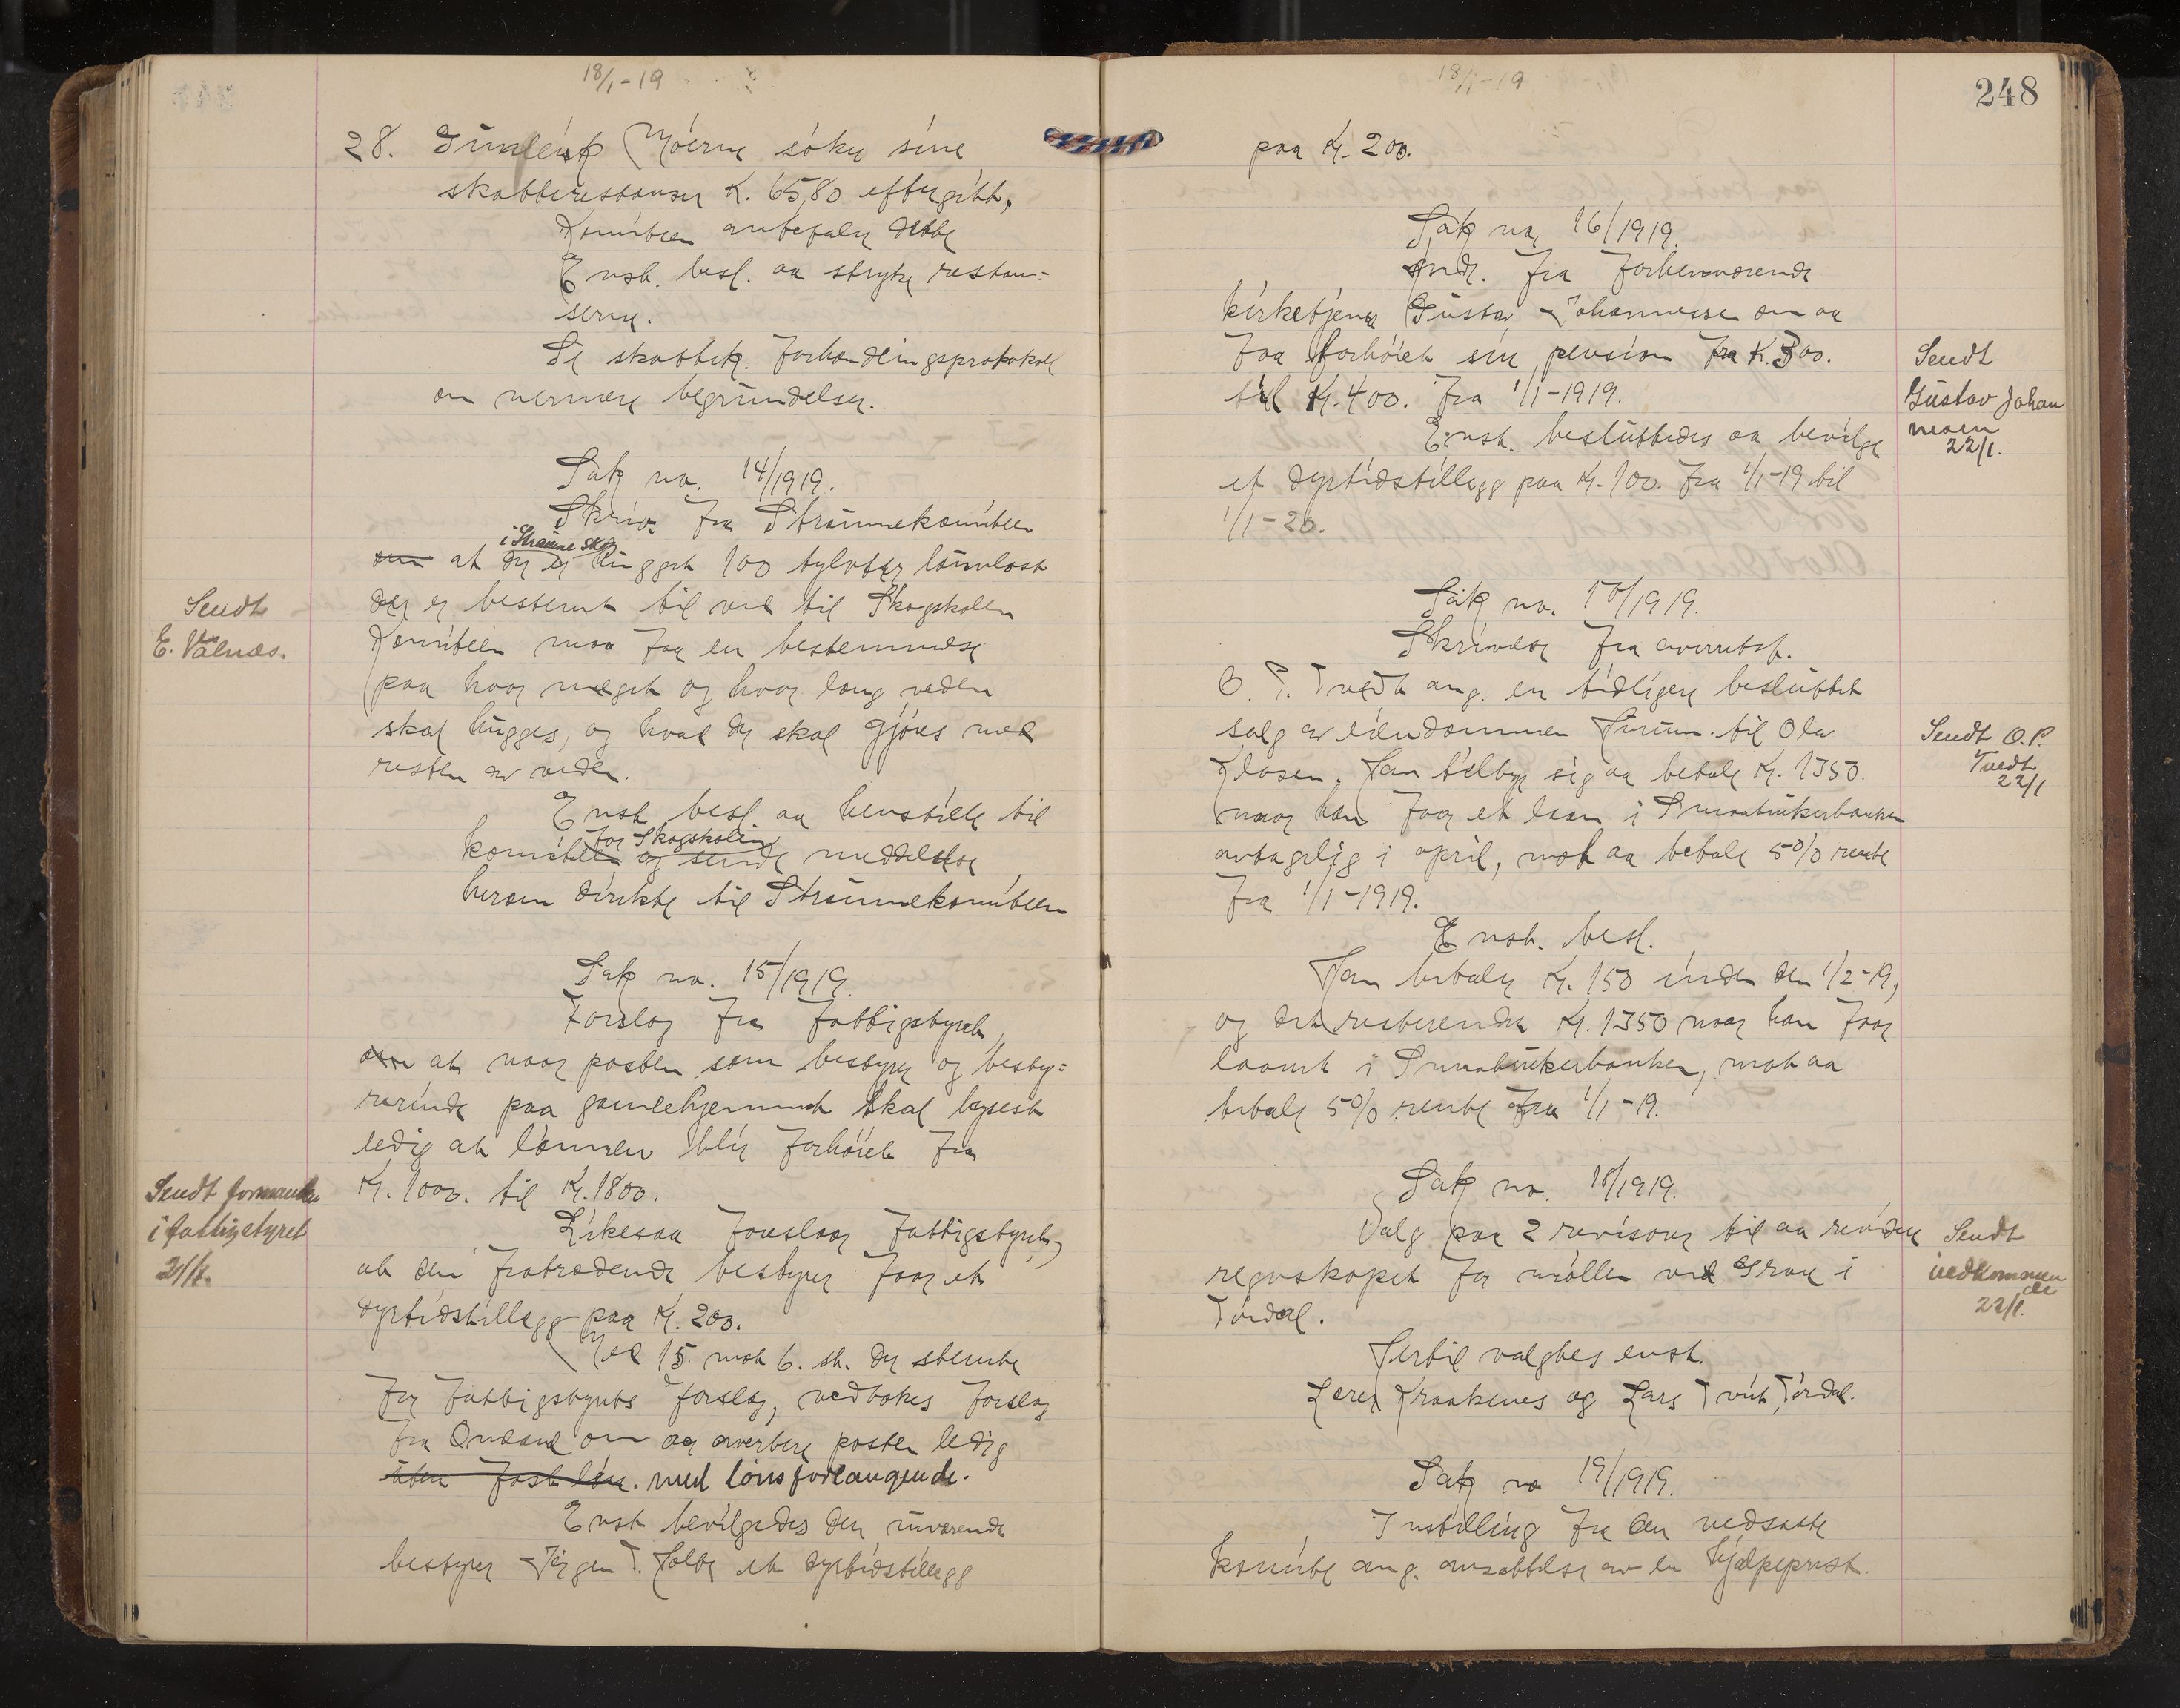 18/1-19
28. Gunleik Moerne søker sine
skatterestanser Kr. 65,80 eftergitt.
Komiteen anbefaler dette
Enst. besl. aa stryke restan=
serne.
Se skattek. forhandlingsprotokol
om nermere begrundelse.
Sak no. 14/1919.
Skriv. fra Straumekomiteen
i Straume skog
om at der er hugget 100 tylvter lauvlast
der er bestemt til ved til Skogskolen
Komiteen maa faa en bestemmelse
paa hvor meget og hvor lang veden
skal hugges, og hvad der skal gjøres med
resten av veden.
Enst. besl. aa henstille til
for Skogskolen
komiteen og sende meddelelse
herom direkte til Straumekomiteen
Sak no. 15/1919.
Forslag fra fattigstyret,
om at naar posten som bestyrer og besty=
rerinde paa gamlehjemmet skal lyses
ledig at lønnen blir forhøiet fra
Kr. 1000. til Kr. 1800.
Likesaa foreslaar fattigstyret,
at den fratrædende bestyrer faar et
dyrtidstillegg paa Kr. 200.
Med 15 mot 6. st. der stemte
for fattigstyrets forslag, vedtokes forslag
fra om aa averterer posten ledig
uten fast løn. med lønsforlangende.
Enst bevilgedes den nuværende
bestyrer Jørgen T. Holte et dyrtidstillegg
Sendt
E. Valnes.
Sendt formanden
i fattigstyret
21/1.
18/1-19
248
paa Kr. 200.
Sak no 16/1919.
And. fra forhenværende
kirketjener Gustav Johannesen om aa
faa forhøiet sin pension fra Kr. 300.
til Kr. 400. fra 1/1-1919.
Enst. besluttedes aa bevilge
et dyrtidstillegg paa Kr. 100. fra 1/1-19 til
1/1-20.
Sak no. 17/1919.
Skrivelse fra overretssf.
O. P. Tvedt ang. en tidligere besluttet
salg av eiendommen til Ola
Klasen. Han tilbyr sig aa betale Kr. 1350.
naar han faar et laan i Smaabrukerbanken
antagelig i april, mot aa betale 5% rente
fra 1/1-1919.
Enst. besl.
Han betaler Kr. 150 inden den 1/2-19,
og det resterende Kr. 1350 naar han faar
laanet i Smaabrukerbanken, mot aa
betale 5% rente fra 1/1-19.
Sak no. 18/1919.
Valg paa 2 revisorer til aa revidere
regnskapet for møllen ved Grave i
Tørdal.
Hertil valgtes enst.
Lærer Kraakenes og Lars Tveit, Tørdal.
Sak no 19/1919.
Instilling fra den nedsatte
komite ang. ansettelse av en hjælpeprest.
Sendt
Gustav Johan
nesen
22/1.
Sendt O.P.
Tvedt
22/1
Sendt
vedkommen
de
22/1.